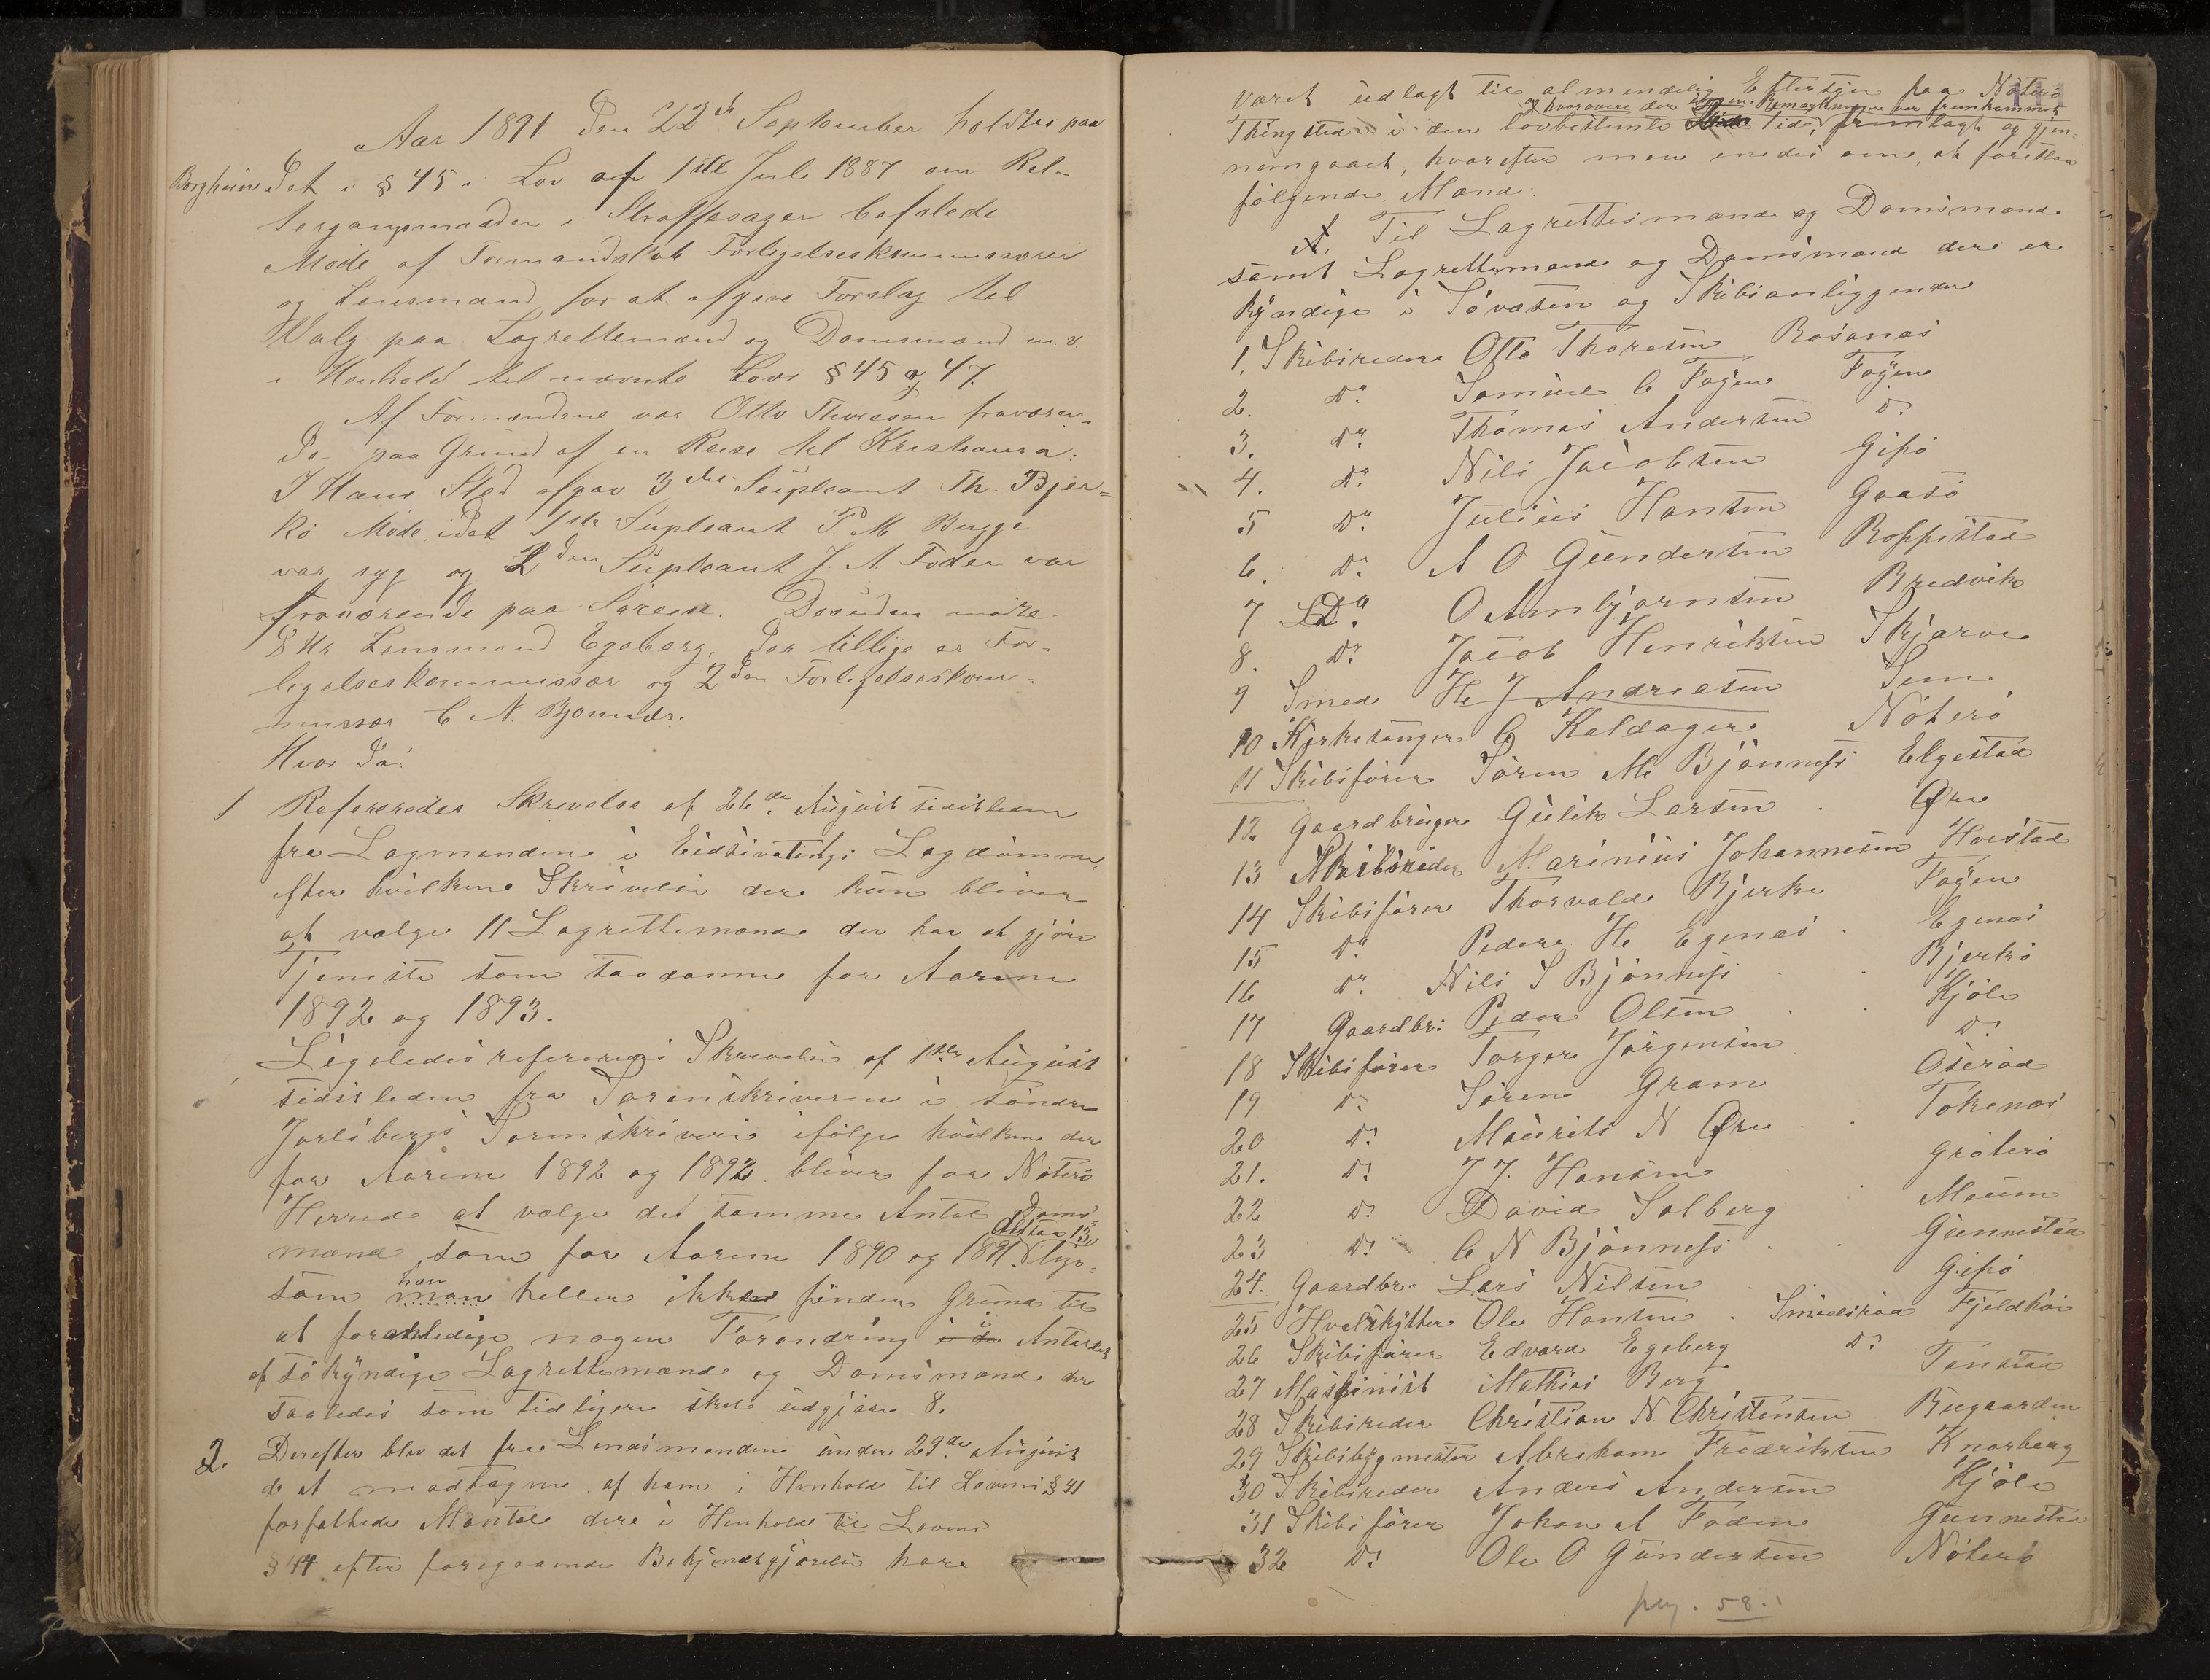 Aar 1891 Den 22de September holdtes paa
Borgheim Det i § 45 i Lov af 1ste Juli 1887 om Ret-
tergangsmaaden i Straffesager befalede
Møde af Formandskab Forligelseskommissærer
og Lensmand for at afgive Forslag til
Valg paa Lagrettemænd og Domsmænd m. v.
i Henhold til nævnte Lovs § 45 og 47.
Af Formændene var Otto Thoresen fraværen-
de paa Grund af en Reise til Kristiania.
I Hans Sted afgav 3die Supleant Th. Bjer-
kø Møde, idet 1ste Supleant P. M. Bugge
var syg og 2den Supleant J. A. Foden var
fraværende paa Søreise. Desuden mødte
Hr Lensmand Egeberg, der tillige er For-
ligelseskommissær og 2den Forligelseskom-
missær C N. Bjønnes.
Hvor Da:
1 Refereredes Skrivelse af 26de August sidstleden
fra Lagmanden i Eidsivatings Lagdømme,
efter hvilken Skrivelse der kun bliver
at vælge 11 Lagrettemænd der har at gjøre
Tjeneste som saadanne for Aarene
1892 og 1893.
Ligeledes refereredes Skrivelse af 1ste August
sidstleden fra Sorenskriveren i søndre
Jarlsbergs Sorenskriveri ifølge hvilken der
for Aarene 1892 og 1893 bliver for Nøterø
Herred at vælge det samme Antal Doms-
mænd som for Aarene 1890 og 1891. Altsaa 13. Lige-
som man han heller ikke finder Grund til
at foranledige nogen Forandring i Antallet
af søkyndige Lagrettemænd og Domsmænd der
saaledes som tidligere skal udgjøre 8.
2. Derefter blev det fra Lensmanden under 29de August
d. A modtagne af ham i Henhold til Lovens § 41
forfattede Mantal der i Henhold til Lovens
§ 44 efter foregaaende Bekjendtgjørelse har
været udlagt til almindelig Eftersyn paa Nøterø
og hvorover der ingen Bemærkninger var fremkommet
Thingsted i den lovbestemte Tid, fremlagt og gjen-
nemgaaet, hvorefter man enedes om, at foreslaa
følgende Mænd:
A. Til Lagrettesmænd og Domsmænd
samt Lagrettemænd og Domsmænd der er
kyndige i Søvæsen og Skibsanliggender
1. Skibsreder Otto Thoresen Rosanæs
2. Do. Samuel C Føyen Føyen
3. Do. Thomas Andersen Do.
4. Do. Nils Jacobsen Gipø
5 Do. Julius Hansen Gaasø
6. Do. A O Gundersen Roppestad
7 Do. O Arnbjørnsen Bredvik
8. Do. Jacob Henriksen Skjærve
9 Smed H J Andreasen Sem
10 Kirkesanger C Kaldager Nøterø
11 Skibsfører Søren M Bjønness Elgestad
12 Gaardbruger Gulik Larsen Øre
13 Skibsreder Marinius Johannesen Hvistad
14 Skibsfører Thorvald Bjerke Føyen
15 Do. Peder H Egenæs Egenæs
16 Do. Nils S Bjønness Bjerkø
17 Gaardbr: Peder Olsen Kjøle
18 Skibsfører Torger Jørgensen Do.
19 Do. Søren Gram Oserød
20 Do. Maurits N Øre Tokenæs
21. Do. J J. Hansen Grøterø
22 Do. David Solberg Maum
23 Do. C N Bjønness Gunnestad
24. Gaardbr. Lars Nilsen Gipø
25 Hvalskytter Ole Hansen Smidsrød Fjeldkøi
26 Skibsfører Edvard Egeberg Do.
27 Maskinist Mathias Berg Tanstad
28 Skibsreder Christian N Christensen Bugaarden
29 Skibsbygmester Abraham Fredriksen Knarberg
30 Skibsreder Anders Andersen Kjøle
31 Skibsfører Johan A Foden Gunnestad
32 Do. Ole O Gundersen Nøterø
pag. 58.